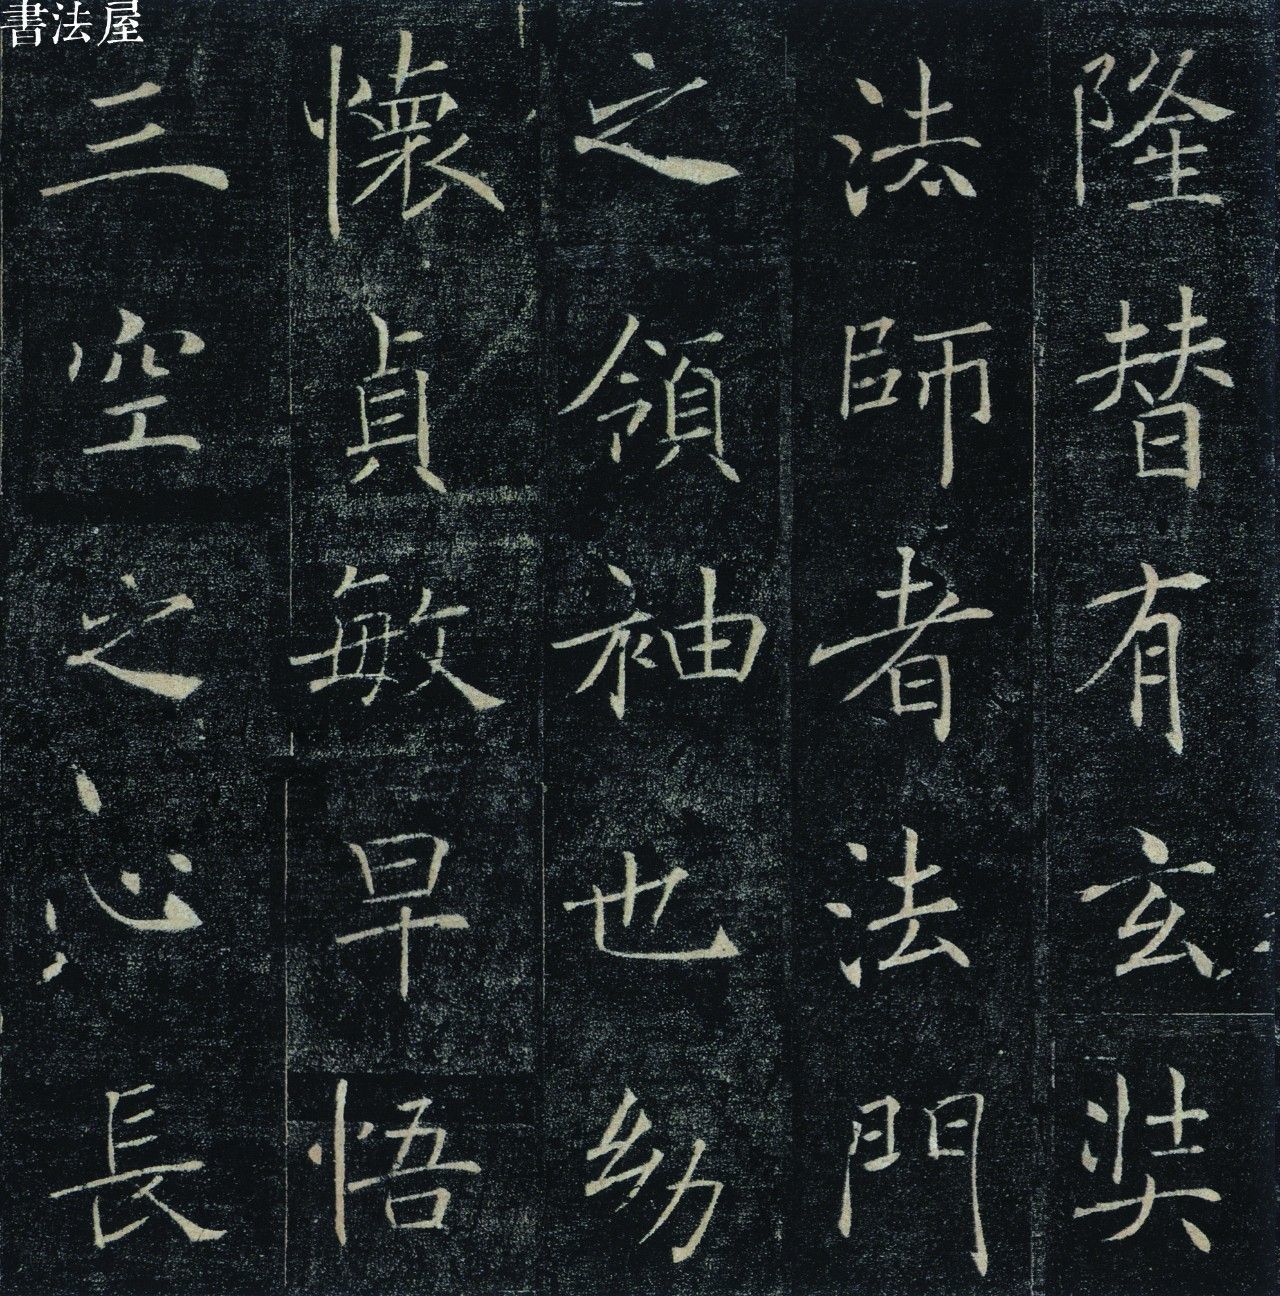 書法屋
隆替有玄奘
法師者法門
之領袖也幼
懷貞敏早悟
三空之心長